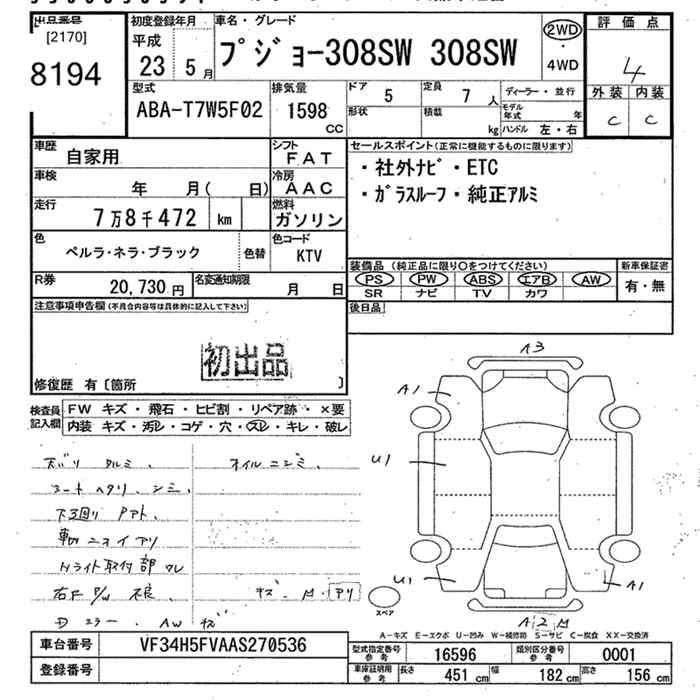 出品番号
[2170]
8194
初度登録年月
平成
23 5月
車名・グレード
プジョー308SW 308SW
2WD
・
4WD
評価点
4
外装 内装
C C
型式
ABA-T7W5F02
排気量
1598
CC
ドア 5
定員 7 人
形状
積載 kg
ディーラー・並行
モデル年式 年
ハンドル 左・右
車歴 自家用
シフト FAT
車検 年 月( 日)
冷房 AAC
走行 7万8千472 km
燃料 ガソリン
色 ペルラ・ネラ・ブラック
色替
色コード KTV
R券 20,730円
名変通知期限 月 日
セールスポイント(正常に機能するものに限ります)
・社外ナビ・ETC
・ガラスルーフ・純正アルミ
装備品(純正品に限り○をつけてください)
PS PW ABS エアB AW
SR ナビ TV カワ
新車保証書
有・無
後日品
注意事項申告欄(不具合内容等は具体的に記入して下さい)
初出品
修復歴 有〔箇所 〕
検査員記入欄
FW キズ・飛石・ヒビ割・リペア跡・×要
内装 キズ・汚レ・コゲ・穴・スレ・キレ・破レ
オイルニジミ、
下回り
車内ニオイアリ
Nライト取付部 ワレ
右F P/W 不良
A3
A1
U1
U1
A1
A2
スペア
A-キズ E-エクボ U-凹み W-補修跡 S-サビ C-腐食 XX-交換済
車台番号 VF34H5FVAAS270536
登録番号
型式指定番号参考 16596
類別区分番号参考 0001
車庫証明用参考 長さ 451 cm 幅 182 cm 高さ 156 cm